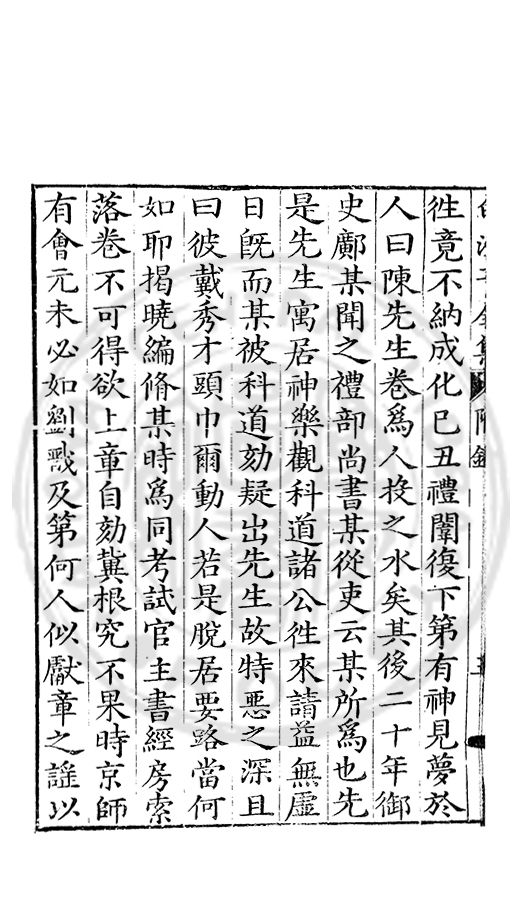 徃竟不納成化巳丑禮闈復下第有神見夢於
人曰陳先生卷爲人投之水矣其後二十年御
史鄺某聞之禮部尚書某從吏云某所爲也先
是先生寓居神樂觀科道諸公徃來請益無虛
日旣而某被科道劾疑出先生故特惡之深且
曰彼戴秀才頭巾爾動人若是脫居要路當何
如耶揭曉編脩某時爲同考試官主書經房索
落卷不可得欲上章自劾兾根究不果時京師
有會元未必如劉戩及第何人似獻章之謡以